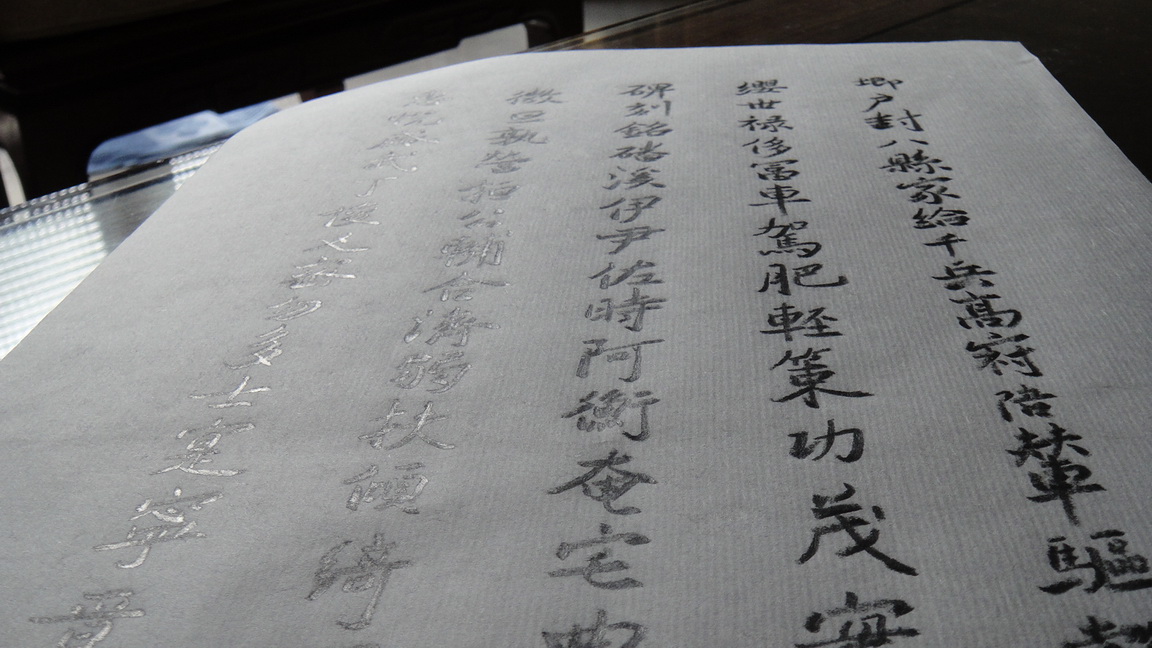 卿户封八縣家給千兵高冠陪輦驅轂
纓世禄侈冨車駕肥軽策功茂実
碑刻銘磻溪伊尹佐時阿衡奄宅曲
微旦孰營桓公輔合濟弱扶傾綺
惠説感武丁俊乂密勿多士寔寧晉